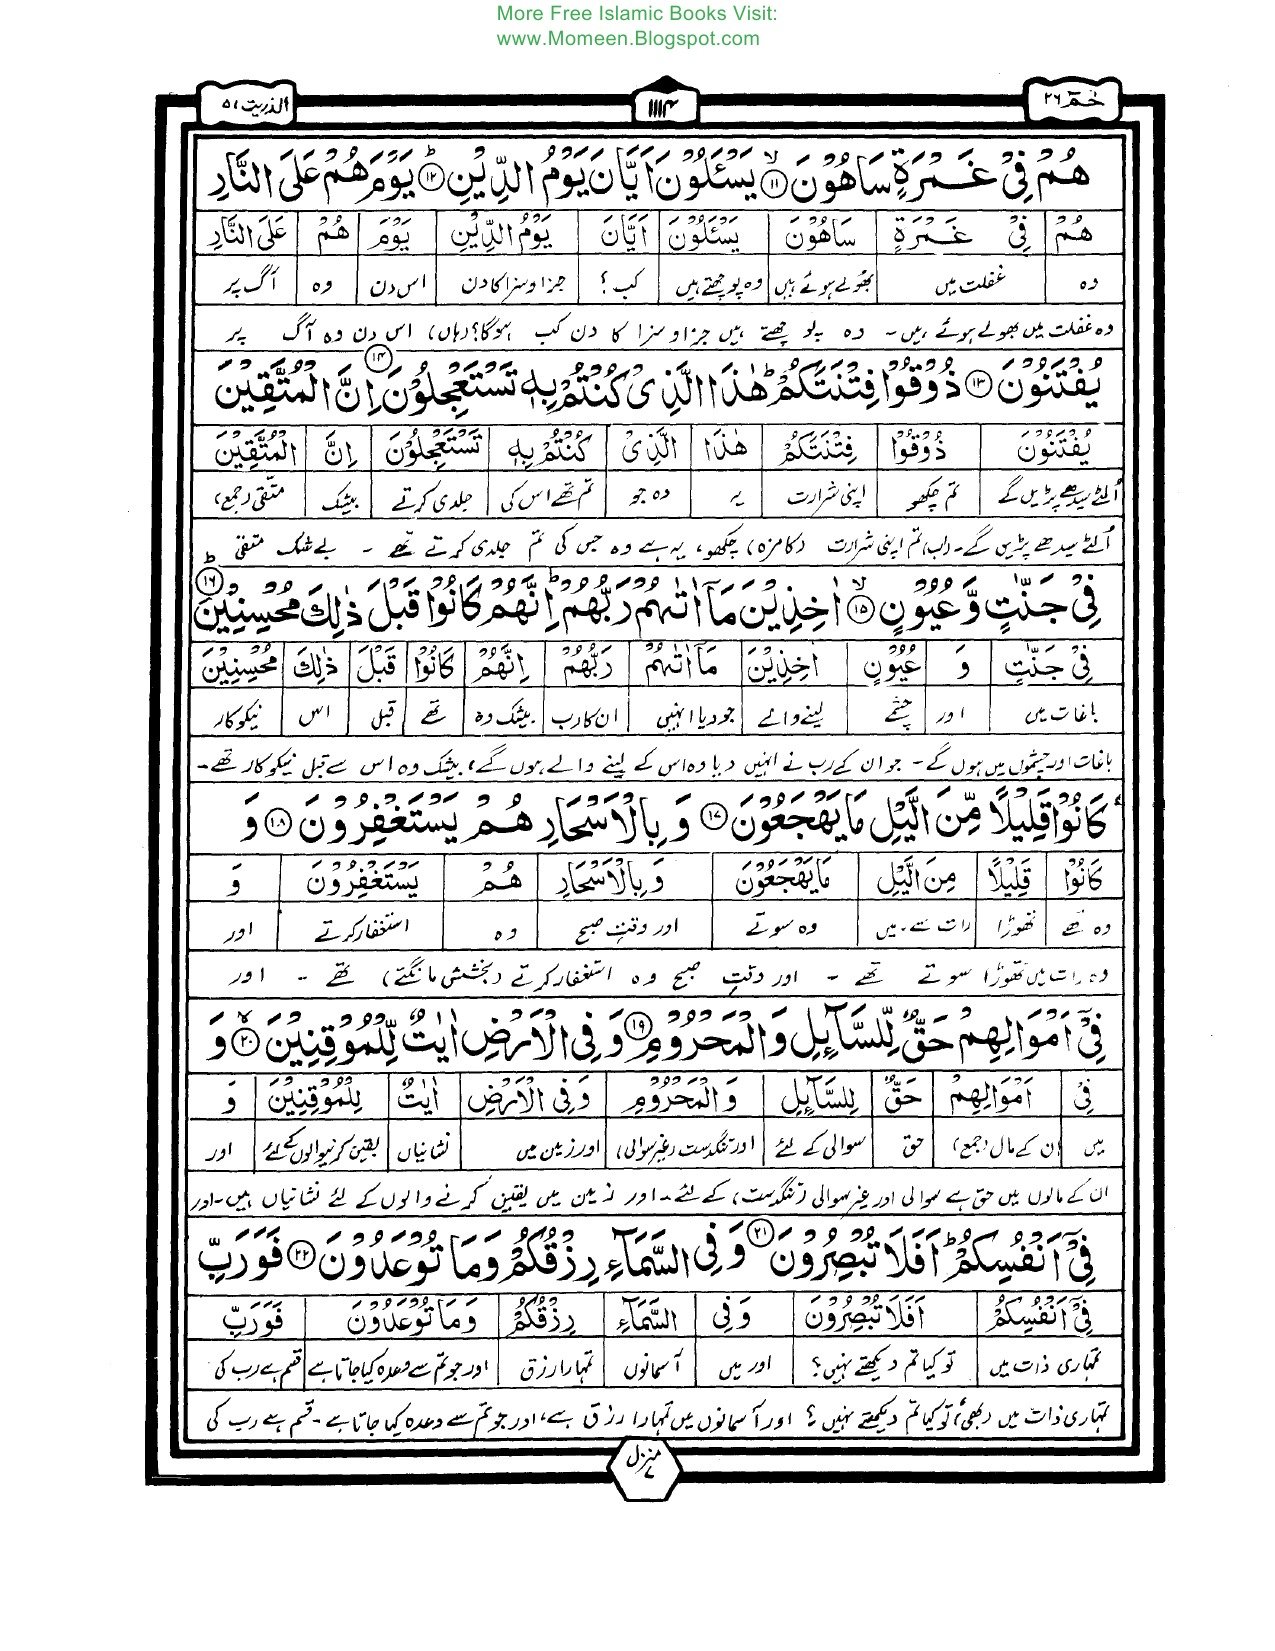 More Free Islamic Books Visit:
www.Momeen.Blogspot.com
حٰمٓ ۲۶ ۱۱۱۴ الذریت ۵۱
هُمْ فِیْ غَمْرَةٍ سَاهُوْنَ ۱۱ یَسْـَٔلُوْنَ اَیَّانَ یَوْمُ الدِّیْنِ ۱۲ یَوْمَ هُمْ عَلَی النَّارِ
هُمْ فِیْ غَمْرَةٍ سَاهُوْنَ یَسْـَٔلُوْنَ اَیَّانَ یَوْمُ الدِّیْنِ یَوْمَ هُمْ عَلَی النَّارِ
وہ غفلت میں بھولے ہوئے ہیں وہ پوچھتے ہیں کب؟ جزا و سزا کا دن اس دن وہ آگ پر
وہ غفلت میں بھولے ہوئے ہیں۔ وہ پوچھتے ہیں جزا و سزا کا دن کب ہوگا؟ (ہاں) اس دن وہ آگ پر
یُفْتَنُوْنَ ۱۳ ذُوْقُوْا فِتْنَتَكُمْ هٰذَا الَّذِیْ كُنْتُمْ بِهٖ تَسْتَعْجِلُوْنَ ۱۴ اِنَّ الْمُتَّقِیْنَ
یُفْتَنُوْنَ ذُوْقُوْا فِتْنَتَكُمْ هٰذَا الَّذِیْ كُنْتُمْ بِهٖ تَسْتَعْجِلُوْنَ اِنَّ الْمُتَّقِیْنَ
اُلٹے سیدھے پڑیں گے تم چکھو اپنی شرارت یہ وہ جو تم تھے اس کی جلدی کرتے بیشک متقی (جمع)
اُلٹے سیدھے پڑیں گے۔ (اب) تم اپنی شرارت (کا مزہ) چکھو، یہ ہے وہ جس کی تم جلدی کرتے تھے۔ بے شک متقی
فِیْ جَنّٰتٍ وَّعُیُوْنٍ ۱۵ اٰخِذِیْنَ مَاۤ اٰتٰىهُمْ رَبُّهُمْ اِنَّهُمْ كَانُوْا قَبْلَ ذٰلِكَ مُحْسِنِیْنَ ۱۶
فِیْ جَنّٰتٍ وَ عُیُوْنٍ اٰخِذِیْنَ مَاۤ اٰتٰىهُمْ رَبُّهُمْ اِنَّهُمْ كَانُوْا قَبْلَ ذٰلِكَ مُحْسِنِیْنَ
باغات میں اور چشمے لینے والے جو دیا انہیں ان کا رب بیشک وہ تھے قبل اس نیکوکار
باغات اور چشموں میں ہوں گے۔ جو ان کے رب نے انہیں دیا وہ اس کے لینے والے ہوں گے، بیشک وہ اس سے قبل نیکو کار تھے۔
كَانُوْا قَلِیْلًا مِّنَ الَّیْلِ مَا یَهْجَعُوْنَ ۱۷ وَ بِالْاَسْحَارِ هُمْ یَسْتَغْفِرُوْنَ ۱۸ وَ
كَانُوْا قَلِیْلًا مِنَ الَّیْلِ مَا یَهْجَعُوْنَ وَ بِالْاَسْحَارِ هُمْ یَسْتَغْفِرُوْنَ وَ
وہ تھے تھوڑا رات سے۔ میں وہ سوتے اور وقتِ صبح وہ استغفار کرتے اور
وہ رات میں تھوڑا سوتے تھے۔ اور وقتِ صبح وہ استغفار کرتے (بخشش مانگتے) تھے۔ اور
فِیْۤ اَمْوَالِهِمْ حَقٌّ لِّلسَّآىِٕلِ وَ الْمَحْرُوْمِ ۱۹ وَ فِی الْاَرْضِ اٰیٰتٌ لِّلْمُوْقِنِیْنَ ۲۰ وَ
فِیْ اَمْوَالِهِمْ حَقٌّ لِلسَّآىِٕلِ وَ الْمَحْرُوْمِ وَ فِی الْاَرْضِ اٰیٰتٌ لِلْمُوْقِنِیْنَ وَ
میں ان کے مال (جمع) حق سوالی کے لئے اور تنگدست (غیر سوالی) اور زمین میں نشانیاں یقین کرنیوالوں کے لئے اور
ان کے مالوں میں حق ہے سوالی اور غیر سوالی (تنگدست) کے لئے۔ اور زمین میں یقین کرنے والوں کے لئے نشانیاں ہیں۔ اور
فِیْۤ اَنْفُسِكُمْ اَفَلَا تُبْصِرُوْنَ ۲۱ وَ فِی السَّمَآءِ رِزْقُكُمْ وَمَا تُوْعَدُوْنَ ۲۲ فَوَرَبِّ
فِیْۤ اَنْفُسِكُمْ اَفَلَا تُبْصِرُوْنَ وَ فِی السَّمَآءِ رِزْقُكُمْ وَمَا تُوْعَدُوْنَ فَوَرَبِّ
تمہاری ذات میں تو کیا تم دیکھتے نہیں؟ اور میں آسمانوں تمہارا رزق اور جو تم سے وعدہ کیا جاتا ہے قسم ہے رب کی
تمہاری ذات میں (بھی) تو کیا تم دیکھتے نہیں؟ اور آسمانوں میں تمہارا رزق ہے، اور جو تم سے وعدہ کیا جاتا ہے۔ قسم ہے رب کی
منزل ۷